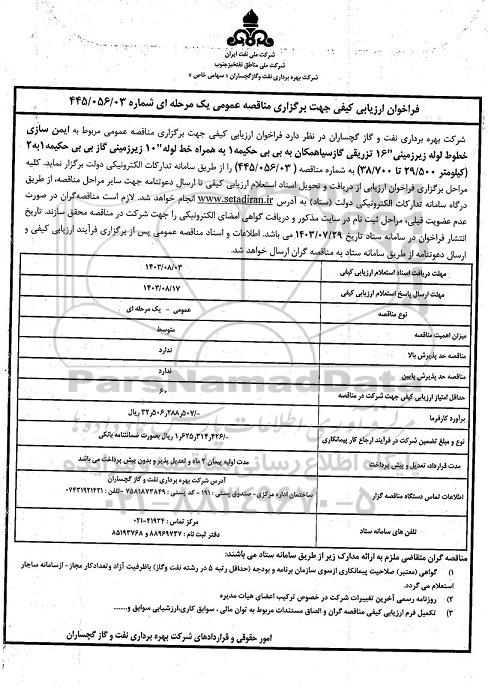 شرکت ملی نفت ایران
شرکت ملی مناطق نفتخیز جنوب
شرکت بهره برداری نفت و گاز گچساران « سهامی خاص »
فراخوان ارزیابی کیفی جهت برگزاری مناقصه عمومی یک مرحله ای شماره ۴۴۵/۰۵۶/۰۳
شرکت بهره برداری نفت و گاز گچساران در نظر دارد فراخوان ارزیابی کیفی جهت برگزاری مناقصه عمومی مربوط به ایمن سازی
خطوط لوله زیرزمینی "۱۶ تزریقی گازسیاهمکان به بی بی حکیمه۱ به همراه خط لوله "۱۰ زیرزمینی گاز بی بی حکیمه۱به۲
(کیلومتر ۲۹/۵۰۰ تا ۳۸/۷۰۰) به شماره مناقصه ( ۴۴۵/۰۵۶/۰۳) را از طریق سامانه تدارکات الکترونیکی دولت برگزار نماید. کلیه
مراحل برگزاری فراخوان ارزیابی از دریافت و تحویل اسناد استعلام ارزیابی کیفی تا ارسال دعوتنامه جهت سایر مراحل مناقصه، از طریق
درگاه سامانه تدارکات الکترونیکی دولت (ستاد) به آدرس www.setadiran.ir انجام خواهد شد. لازم است مناقصه‌گران در صورت
عدم عضویت قبلی، مراحل ثبت نام در سایت مذکور و دریافت گواهی امضای الکترونیکی را جهت شرکت در مناقصه محقق سازند. تاریخ
انتشار فراخوان در سامانه ستاد تاریخ ۱۴۰۳/۰۷/۲۹ می باشد. اطلاعات و اسناد مناقصه عمومی پس از برگزاری فرآیند ارزیابی کیفی و
ارسال دعوتنامه از طریق سامانه ستاد به مناقصه گران ارسال خواهد شد.
مهلت دریافت اسناد استعلام ارزیابی کیفی ۱۴۰۳/۰۸/۰۳
مهلت ارسال پاسخ استعلام ارزیابی کیفی ۱۴۰۳/۰۸/۱۷
نوع مناقصه عمومی - یک مرحله ای
میزان اهمیت مناقصه متوسط
مناقصه حد پذیرش بالا ندارد
مناقصه حد پذیرش پایین ندارد
حداقل امتیاز ارزیابی کیفی جهت شرکت در مناقصه ۶۰
برآورد کارفرما ۳۲٫۵۰۶٫۲۸۸٫۵۰۷/- ریال
نوع و مبلغ تضمین شرکت در فرآیند ارجاع کار پیمانکاری ۱٫۶۲۵٫۳۱۴٫۴۲۶/- ریال بصورت ضمانتنامه بانکی
مدت قرارداد، تعدیل و پیش پرداخت مدت اولیه پیمان ۲ ماه و تعدیل پذیر و بدون پیش پرداخت می باشد
اطلاعات تماس دستگاه مناقصه گزار آدرس شرکت بهره برداری نفت و گاز گچساران
ساختمان اداره مرکزی- صندوق پستی : ۱۹۱ - کد پستی : ۷۵۸۱۸۷۳۸۴۹ -تلفن : ۰۷۴۳۱۹۲۱۴۲۱
تلفن های سامانه ستاد مرکز تماس : ۴۱۹۳۴-۰۲۱
دفتر ثبت نام : ۸۸۹۶۹۷۳۷ و ۸۵۱۹۳۷۶۸
ParsNamadData
۰۲۱-۸۸۳۴۹۶۷۰-۵
مناقصه گران متقاضی ملزم به ارائه مدارک زیر از طریق سامانه ستاد می باشند:
۱) گواهی (معتبر) صلاحیت پیمانکاری ازسوی سازمان برنامه و بودجه (حداقل رتبه ۵ در رشته نفت وگاز) باظرفیت آزاد وتعدادکار مجاز - ازسامانه ساجار
استعلام می گردد.
۲) روزنامه رسمی آخرین تغییرات شرکت در خصوص ترکیب اعضای هیات مدیره
۳) تکمیل فرم ارزیابی کیفی مناقصه گران و الصاق مستندات مربوط به توان مالی ، سوابق کاری،ارزشیابی سوابق و......
امور حقوقی و قراردادهای شرکت بهره برداری نفت و گاز گچساران